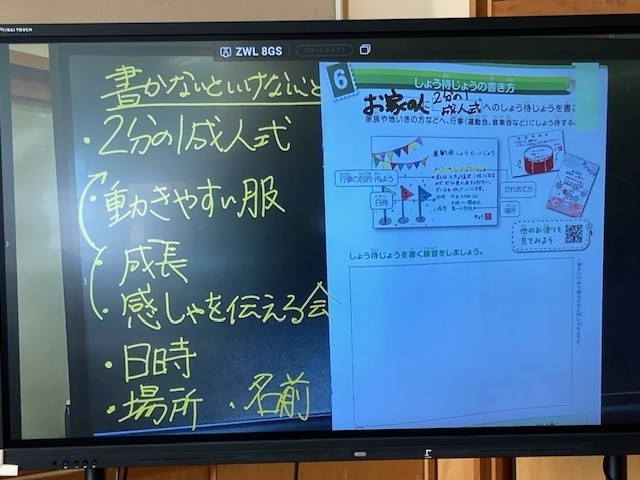 ZWL 8GS
書かないといけないこと
・2分の1成人式
・動きやすい服
・成長
・感しゃを伝える会
・日時
・場所 ・名前
6
しょう待じょうの書き方
お家の人に2分の1成人式へのしょう待じょうを書こ
家族や地いきの方などへ、行事(運動会、音楽会など)にしょう待する
運動会しょうたいじょう
行事の目的・内よう
日時
だれあてか
場所
他のお便りも
見てみよう
しょう待じょうを書く練習をしましょう。